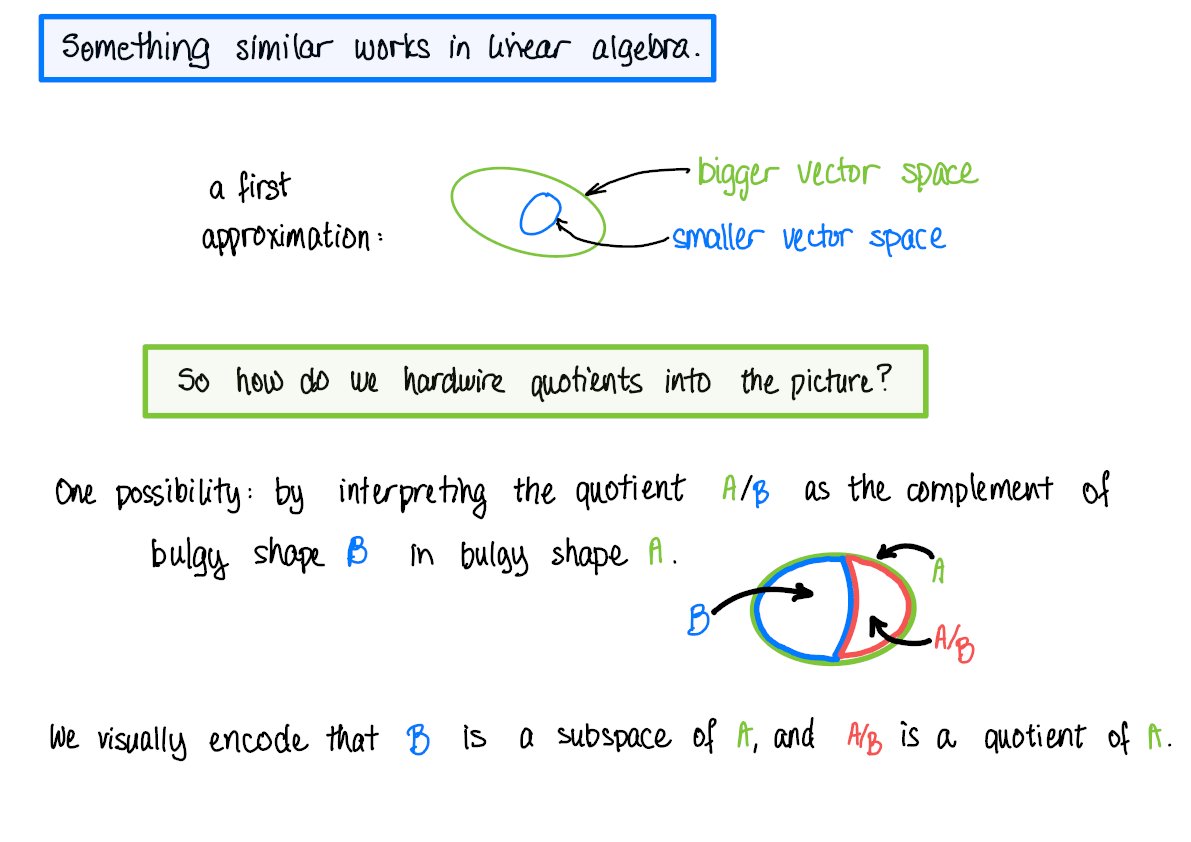 Something similar works in linear algebra.
a first
approximation:
bigger vector space
smaller vector space
So how do we hardwire quotients into the picture?
One possibility: by interpreting the quotient A/B as the complement of
bulgy shape B in bulgy shape A.
A
B
A/B
We visually encode that B is a subspace of A, and A/B is a quotient of A.